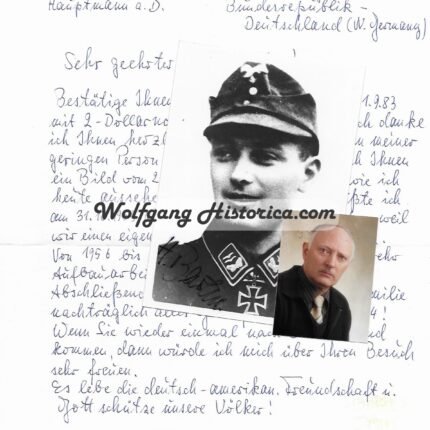 Hauptmann a.D.
Bundesrepublik -
Deutschland (W. Germany)
Sehr geehrter
Bestätige Ihnen 1.9.83
mit 2-Dollarno ch danke
ich Ihnen herzl n meiner
geringen Person h Ihnen
ein Bild vom 2 wie ich
heute aussehe ßte ich
am 31. weil
wir einen eigen
Wolfgang Historica.com
Von 1956 bis wehr
Aufbauarbei
Abschließend milie
nachträglich al !
Wenn Sie wieder einmal nac nd
kommen, dann würde ich mich über Ihren Besuch
sehr freuen.
Es lebe die deutsch-amerikan. Freundschaft u.
Gott schütze unsere Völker!